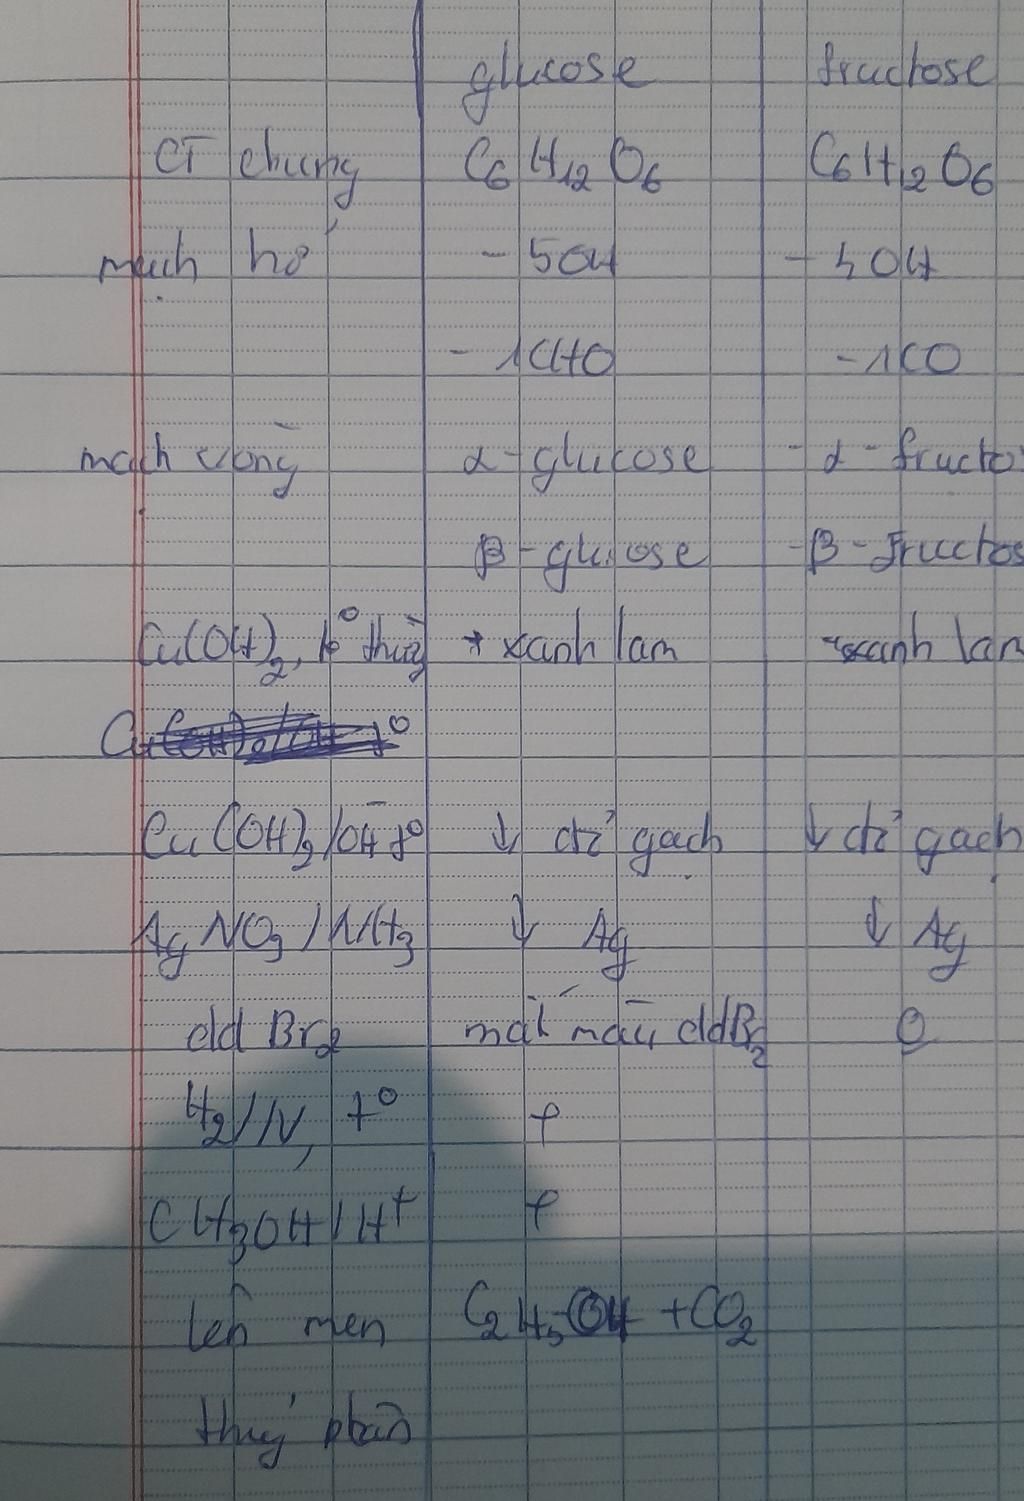 glucose fructose
CT chung C6H12O6 C6H12O6
mạch hở - 5OH - 5OH
- 1CHO - 1CO
mạch vòng α-glucose - α-fructo
β-glucose - β-fructos
Cu(OH)2, t° thg + xanh lam xanh lam
Cu(OH)2/OH- t° ↓ đỏ gạch ↓ đỏ gạch
AgNO3/NH3 ↓ Ag ↓ Ag
dd Br2 mất màu ddBr2 0
H2/Ni, t° +
CH3OH/H+ +
lên men C2H5OH + CO2
thuỷ phân